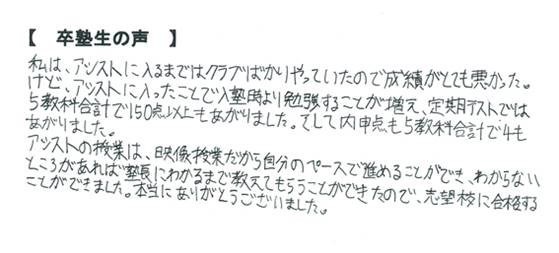 【 卒塾生の声 】
私は、アシストに入るまではクラブばかりやっていたので成績がとても悪かった。
けど、アシストに入ったことで入塾時より勉強することが増え、定期テストでは
5教科合計で150点以上もあがりました。そして内申点も5教科合計で4も
あがりました。
アシストの授業は、映像授業だから自分のペースで進めることができ、わからない
ところがあれば塾長にわかるまで教えてもらうことができたので、志望校に合格する
ことができました。本当にありがとうございました。